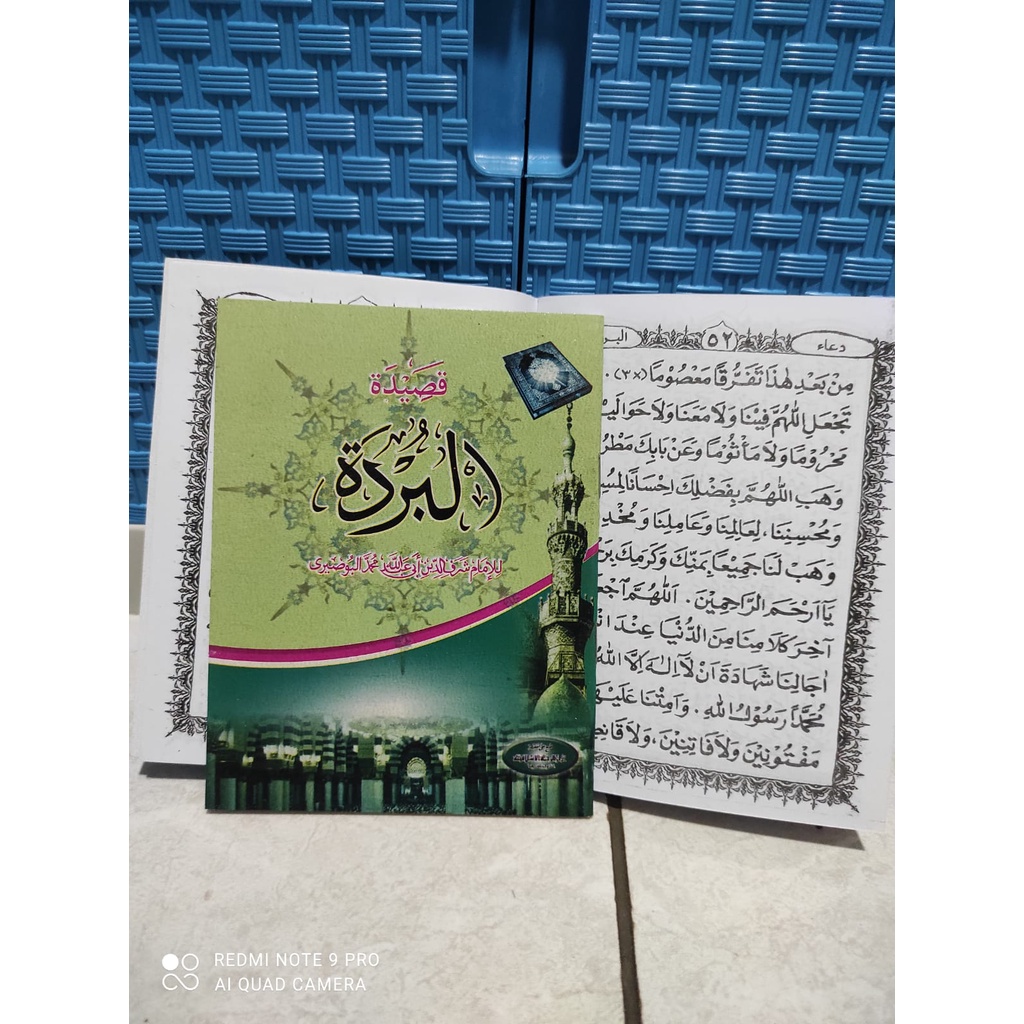 قَصِيْدَة
البُرْدَة
للإمام شرف الدين أبي عبد الله محمد البوصيري
دعاء
٥٢
البر
مِنْ بَعْدِ هٰذَا تَفَرُّقًا مَعْصُوْمًا (×٣) .
تَجْعَلِ اللّٰهُمَّ فِيْنَا وَلَا مَعَنَا وَلَا حَوَالَيْ
مَحْرُوْمًا وَلَا مَأْثُوْمًا وَعَنْ بَابِكَ مَطْرُ
وَهَبِ اللّٰهُمَّ بِفَضْلِكَ اِحْسَانًا لِمُسِ
وَمُحْسِنِنَا، لِعَالِمِنَا وَعَامِلِنَا وَمُخْلِ
وَهَبْ لَنَا جَمِيْعًا بِمَنِّكَ وَكَرَمِكَ بَر
يَا اَرْحَمَ الرَّاحِمِيْنَ . اَللّٰهُمَّ اجْعَ
آخِرَ كَلَامِنَا مِنَ الدُّنْيَا عِنْدَ انْ
اٰجَالِنَا شَهَادَةَ اَنْ لَا اِلٰهَ اِلَّا اللّٰهُ
مُحَمَّدًا رَسُوْلُ اللّٰهِ . وَاَمِتْنَا عَلَيْهَ
مَفْتُوْنِيْنَ وَلَا فَاتِنِيْنَ ، وَلَا قَانِط
REDMI NOTE 9 PRO
AI QUAD CAMERA